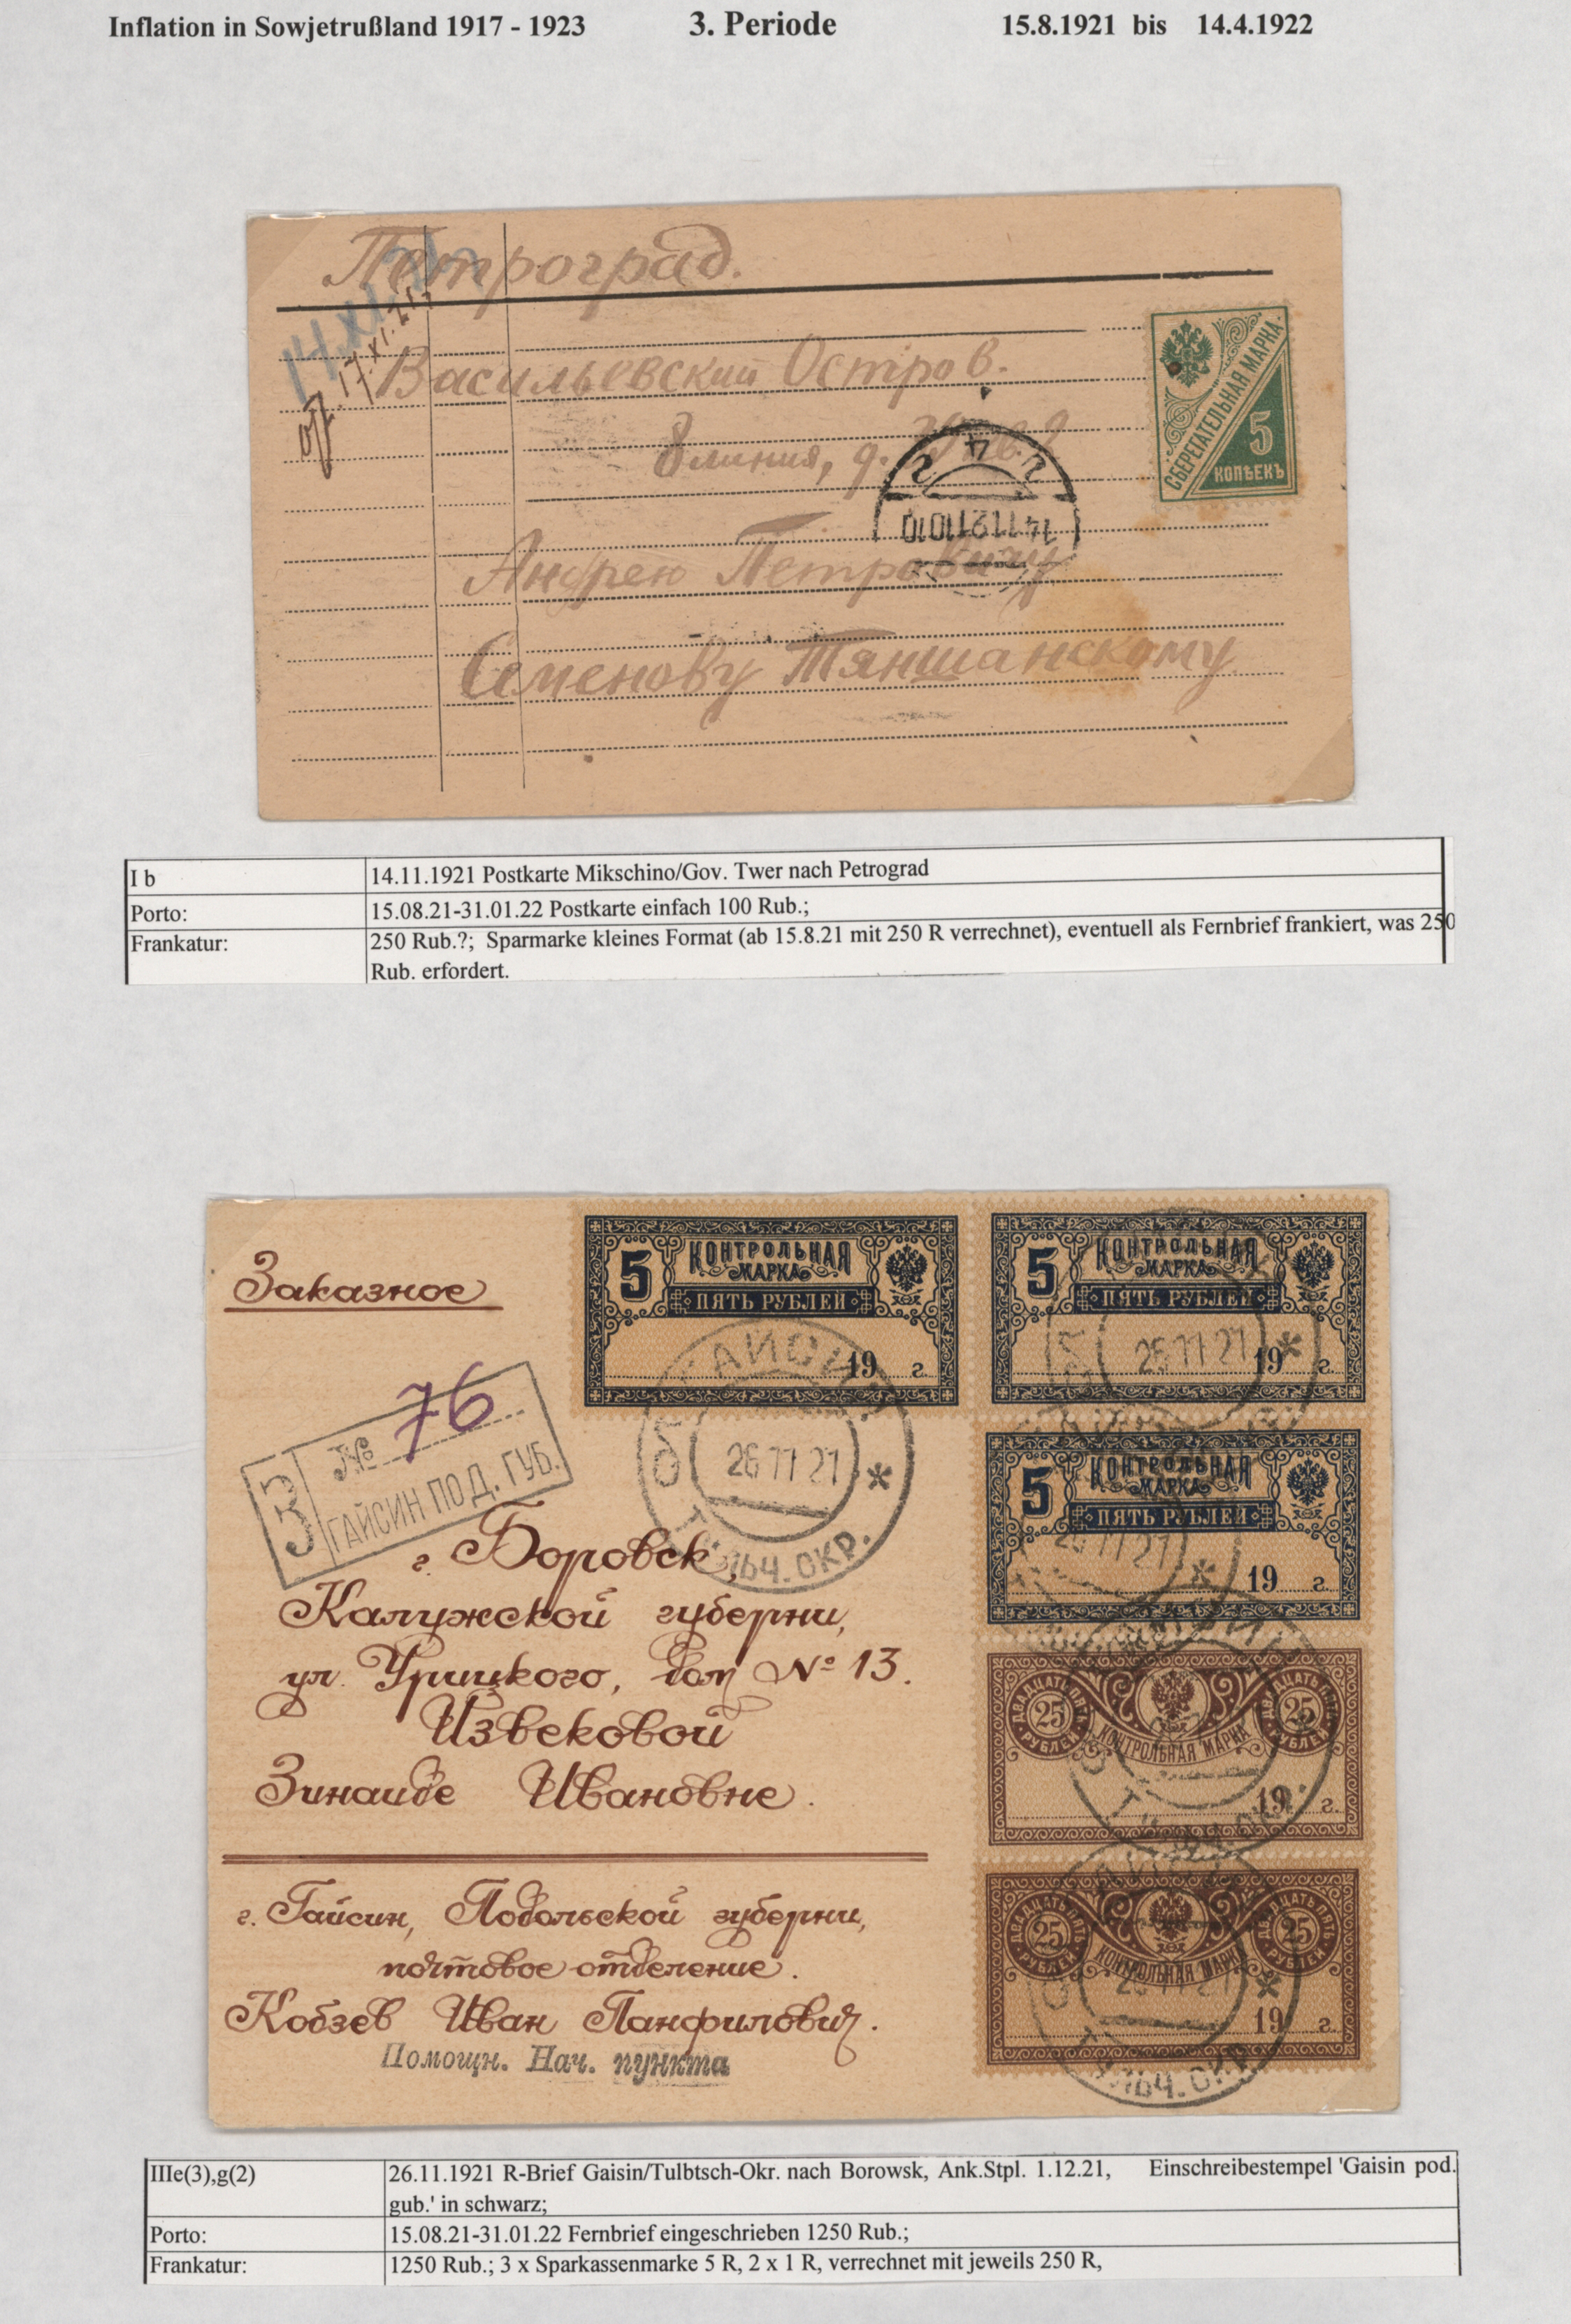 Inflation in Sowjetrußland 1917 - 1923 3. Periode 15.8.1921 bis 14.4.1922
Петроград.
14.XI.21
17.XI.21
Васильевский Остров.
8 линия, д.
14 11 21 10 10
Андрею Петровичу
Семенову Тяншанскому.
СБЕРЕГАТЕЛЬНАЯ МАРКА
5
КОПѢЕКЪ
I b 14.11.1921 Postkarte Mikschino/Gov. Twer nach Petrograd
Porto: 15.08.21-31.01.22 Postkarte einfach 100 Rub.;
Frankatur: 250 Rub.?; Sparmarke kleines Format (ab 15.8.21 mit 250 R verrechnet), eventuell als Fernbrief frankiert, was 250
Rub. erfordert.
Заказное
5 КОНТРОЛЬНАЯ
МАРКА
ПЯТЬ РУБЛЕЙ
19 г.
5 КОНТРОЛЬНАЯ
МАРКА
ПЯТЬ РУБЛЕЙ
19 г.
ГАЙСИН
26 11 21
ЛЬЧ. ОКР.
26 11 21
З № 76
ГАЙСИН ПОД. ГУБ.
5 КОНТРОЛЬНАЯ
МАРКА
ПЯТЬ РУБЛЕЙ
19 г.
26 11 21
г. Боровск,
Калужской губерни,
ул. Урицкого, дом № 13.
Извековой
Зинаиде Ивановне.
ДВАДЦАТЬ ПЯТЬ РУБЛЕЙ 25 КОНТРОЛЬНАЯ МАРКА ДВАДЦАТЬ ПЯТЬ РУБЛЕЙ 25
19 г.
г. Гайсин, Подольской губерни,
почтовое отделение.
Кобзев Иван Панфилович.
Помощн. Нач. пункта
ДВАДЦАТЬ ПЯТЬ РУБЛЕЙ 25 КОНТРОЛЬНАЯ МАРКА ДВАДЦАТЬ ПЯТЬ РУБЛЕЙ 25
26 11 21
19 г.
ЛЬЧ. ОКР.
IIIe(3),g(2) 26.11.1921 R-Brief Gaisin/Tulbtsch-Okr. nach Borowsk, Ank.Stpl. 1.12.21, Einschreibestempel 'Gaisin pod.
gub.' in schwarz;
Porto: 15.08.21-31.01.22 Fernbrief eingeschrieben 1250 Rub.;
Frankatur: 1250 Rub.; 3 x Sparkassenmarke 5 R, 2 x 1 R, verrechnet mit jeweils 250 R,